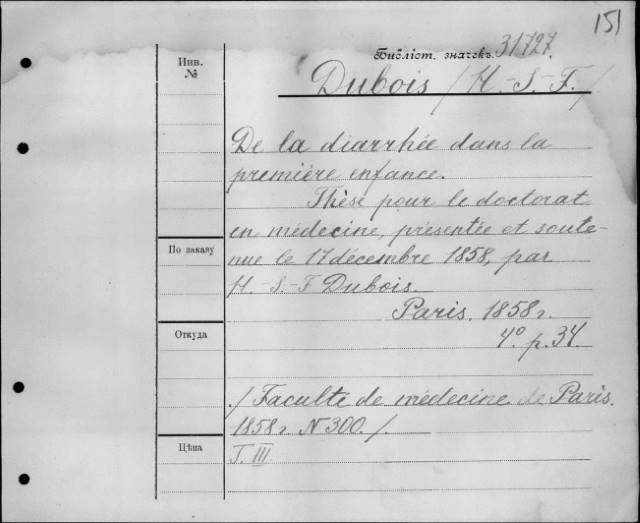 151
Библіот. значекъ. 31727.
Инв.
№
Dubois /H.-S.-F./
De la diarrhée dans la
première enfance.
Thèse pour le doctorat
en médecine, présentée et soute-
По заказу
nue le 17 décembre 1858, par
H.-S.-F Dubois.
Paris. 1858г.
Откуда
4º. p. 34.
/Faculté de médecine de Paris.
1858г. N 300./.
Цѣна
T. III.